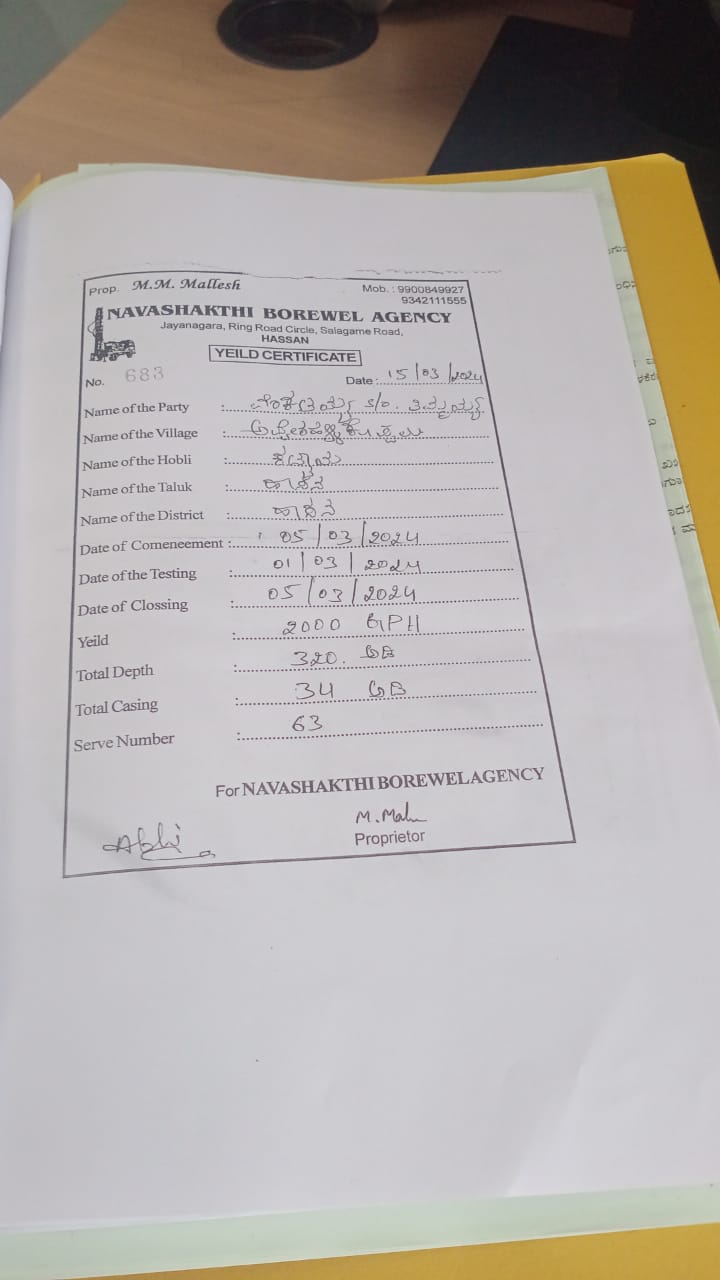 Prop. M.M. Mallesh
Mob. : 9900849927
9342111555
NAVASHAKTHI BOREWEL AGENCY
Jayanagara, Ring Road Circle, Salagame Road,
HASSAN
YEILD CERTIFICATE
No. 683
Date : 15/03/2024
Name of the Party :. S/o.
Name of the Village :.
Name of the Hobli :.
Name of the Taluk :. ಹಾಸನ
Name of the District :. ಹಾಸನ
Date of Comeneement :. 05/03/2024
Date of the Testing :. 01/03/2024
Date of Clossing :. 05/03/2024
Yeild :. 2000 GPH
Total Depth :. 320. ಅಡಿ
Total Casing :. 34 ಅಡಿ
Serve Number :. 63
For NAVASHAKTHI BOREWEL AGENCY
Abhi
Proprietor